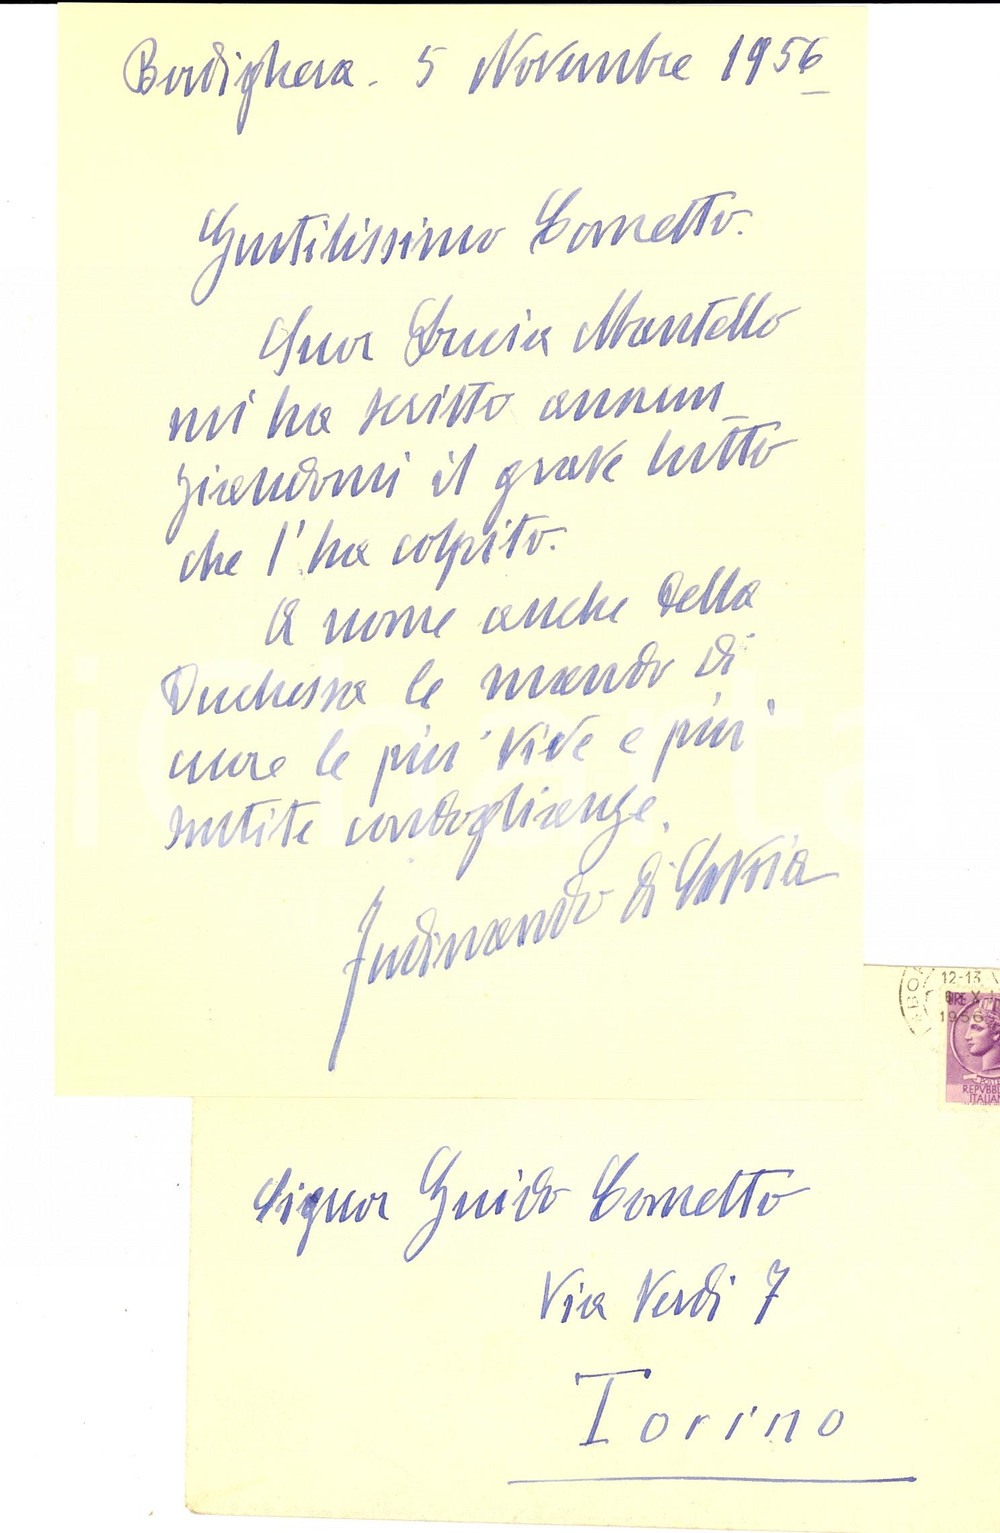 Bordighera. 5 Novembre 1956
Gentilissimo Cometto.
Suor Lucia Mantello
mi ha scritto annun_
ziandomi il grave lutto
che l'ha colpito.
A nome anche della
Duchessa le mando di
cuore le più vive e più
sentite condoglianze.
Ferdinando di Savoia
12-13
1956
LIRE
POSTE
REPVBB
ITALIAN
Signor Guido Cometto
Via Verdi 7
Torino
iCharta